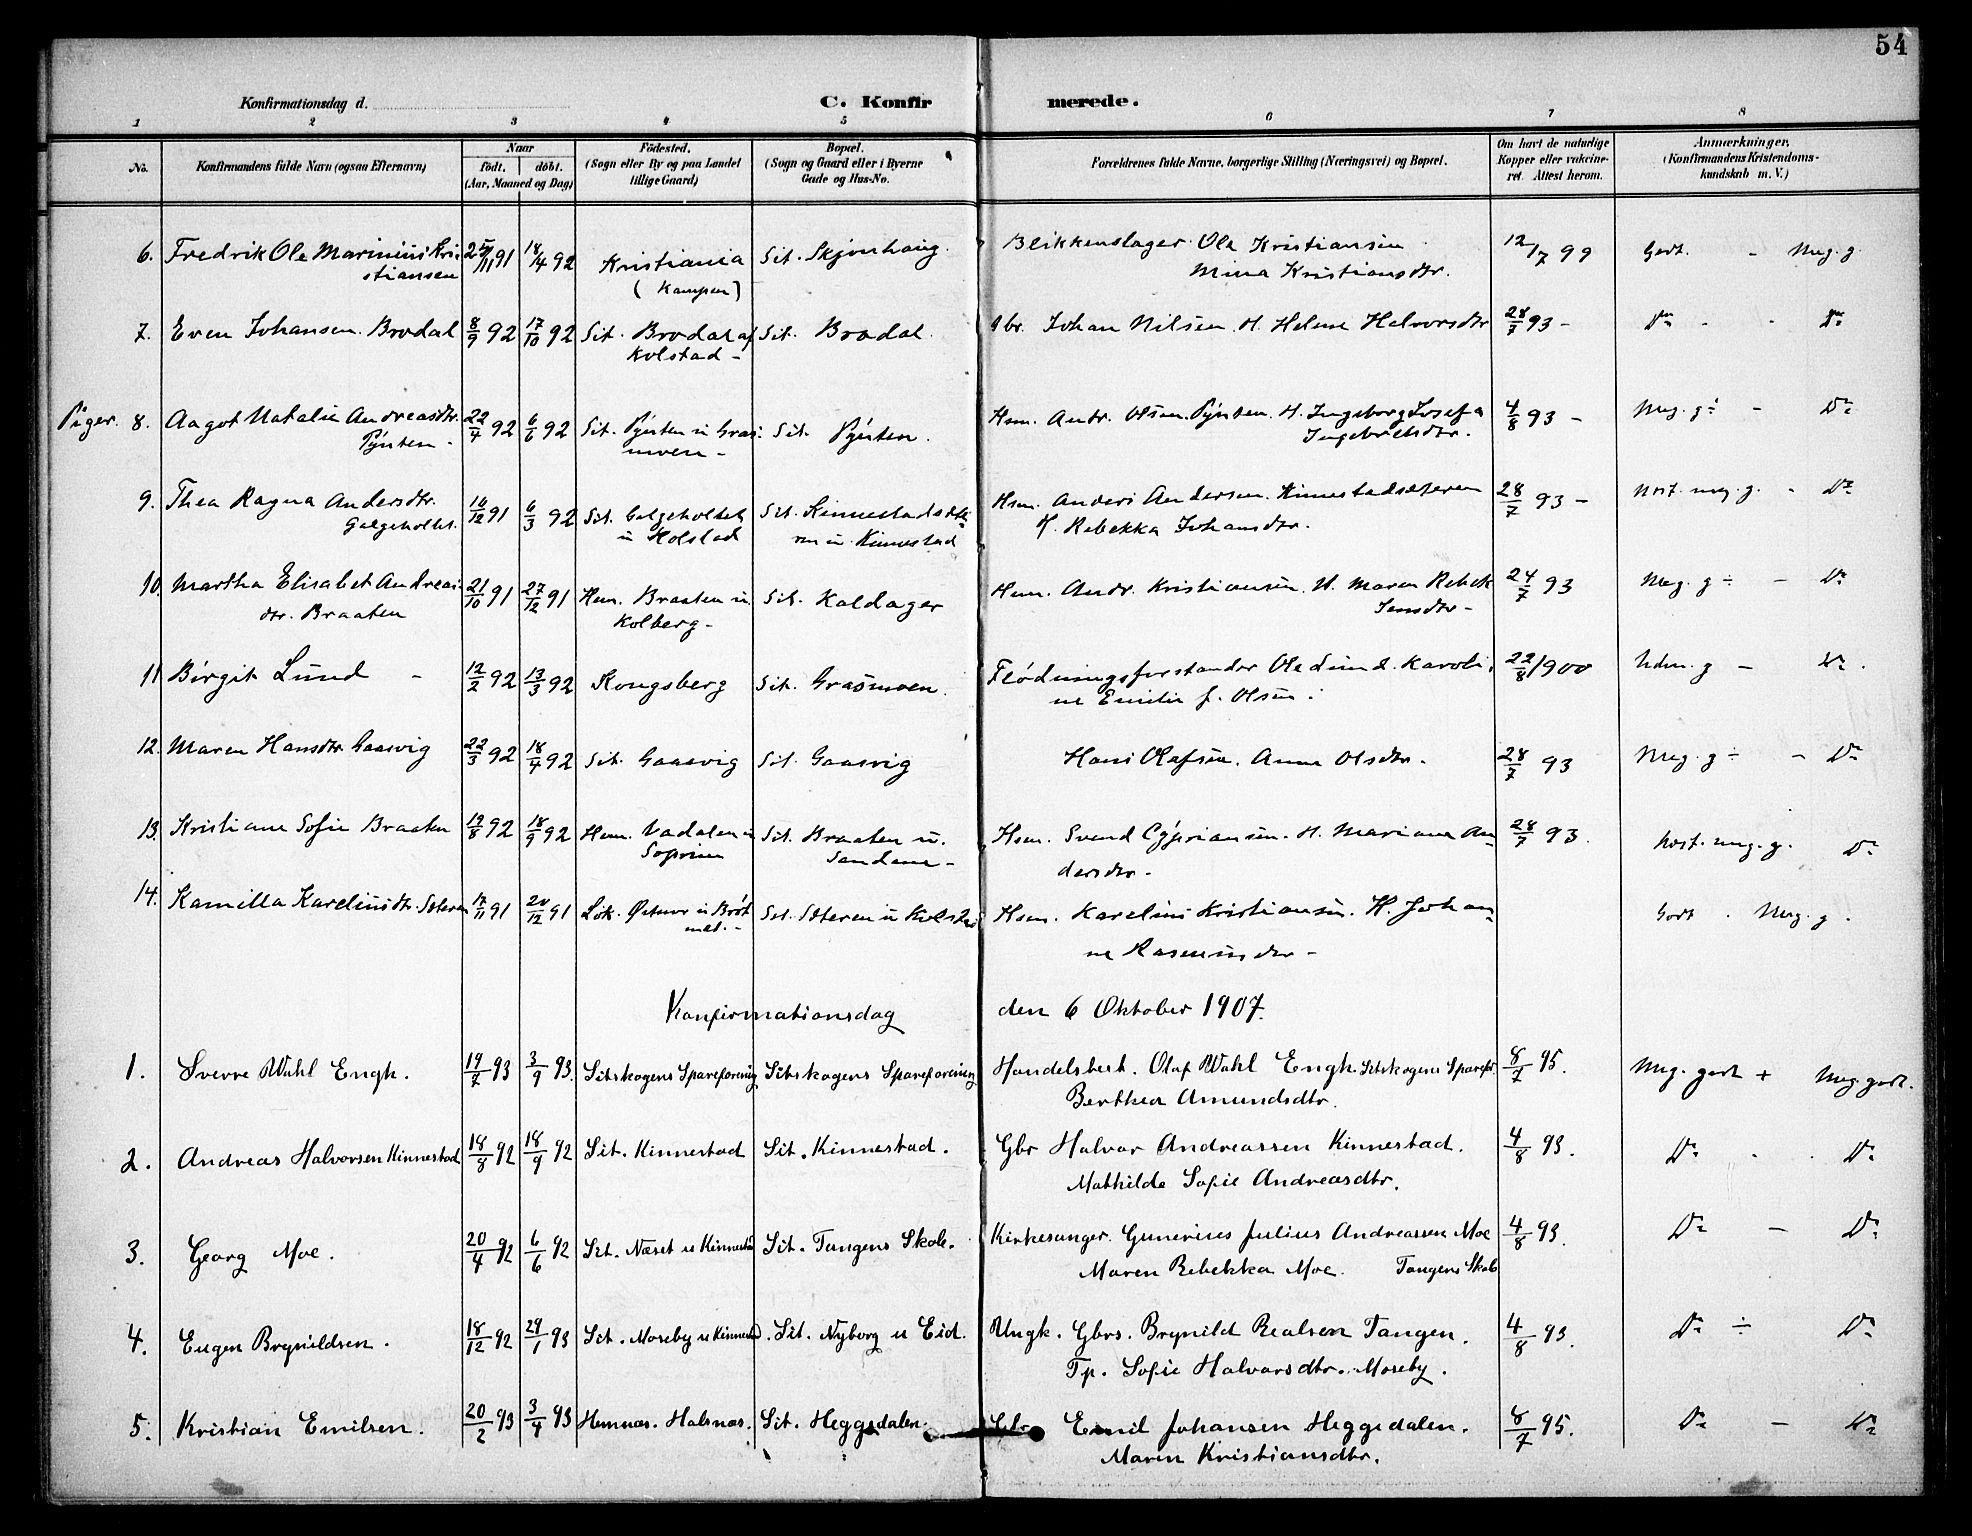 54
Konfirmationsdag d.
C. Konfirmerede.
1 2 3 4 5 6 7 8
No.
Konfirmandens fulde Navn (ogsaa Efternavn)
Naar
født. døbt.
(Aar, Maaned og Dag)
Fødested.
(Sogn eller By og paa Landet
tillige Gaard)
Bopæl.
(Sogn og Gaard eller i Byerne
Gade og Hus-No.
Forældrenes fulde Navne, borgerlige Stilling (Næringsvei) og Bopæl.
Om havt de naturlige
Kopper eller vakcine-
ret. Attest herom.
Anmærkninger.
(Konfirmandens Kristendoms-
kundskab m. V.)
6. Fredrik Ole Marinius Kri- 25/11 91 18/4 92 Kristiania Sit. Skjønhaug. Blikkenslager Ole Kristiansen 12/7 99 Godt. - Meg. g.
stiansen (Kampen) Mina Kristiansdtr.
7. Even Johansen Brodal 8/9 92 17/10 92 Sit. Brodal af Sit. Brodal. Gbr. Johan Nilsen H. Helene Halvorsdtr 28/7 93 - Do - - Do
Kolstad -
Piger. 8. Aagot Natalie Andreasdtr. 22/4 92 6/6 92 Sit. Pynten u Gras- Sit. Pynten. Hsm. Andr. Olsen Pynten. H. Ingeborg Josefa 4/8 93 - Meg. g ÷ - Do
Pynten - moen - Ingebretsdtr.
9. Thea Ragna Andersdtr. 16/12 91 6/3 92 Sit. Galgeholtet Sit. Kinnestadsæte- Hsm. Anders Andersen. Kinnestadsæteren 28/7 93 - Nost. meg. g. - Do
Galgeholtet. u Kolstad ren u. Kinnestad H. Rebekka Johansdtr.
10. Martha Elisabet Andreas- 21/10 91 27/12 91 Hem. Braaten u Sit. Kaldager Hsm. Andr. Kristiansen. H. Maren Rebek 24/7 93 Meg. g ÷ - Do
dtr. Braaten Kolberg - Jensdtr -
11 Birgit Lund - 12/2 92 13/3 92 Kongsberg Sit. Grasmoen. Flødningsforstander Ole Lund &. Karoli- 22/8 1900 Udm. g - Do.
ne Emilie f. Olsen.
12. Maren Hansdtr. Gaasvig 22/3 92 18/4 92 Sit. Gaasvig Sit. Gaasvig Hans Olafsen. Anna Olsdtr. 28/7 93 Meg. g ÷ - Do
13. Kristiane Sofie Braaten 19/8 92 18/9 92 Hem. Vadalen u Sit. Braaten u. Hsm. Svend Cypriansen. H. Mariana An- 28/7 93. Nost. meg. g. Do
Soprim Sandene - dersdtr -
14. Kamilla Kareliusdtr. Sæteren 17/11 91 20/12 91 Sit. Sæteren u Kolstad Hsm. Karelius Kristiansen. H. Johan- Godt . Meg. g.
ne Rasmusdtr -
Konfirmationsdag den 6 Oktober 1907.
1. Sverre Wahl Engh. 19/7 93 3/9 93. Sitskogens Spareforening Sitskogens Spareforening Handelsbest. Olaf Wahl Engh Sitskogens Sparefor. 8/7 95. Meg. godt + Meg. godt.
Berthea Amundsdtr.
2. Andreas Halvorsen Kinnestad 18/8 92 18/9 92 Sit. Kinnestad Sit. Kinnestad. Gbr Halvor Andreassen Kinnestad. 4/8 93. Do . . Do
Mathilde Sofie Andreasdtr.
3. Georg Moe. 20/4 92 6/6 92 Sit. Næset u Kinnestad Sit. Tangens Skole. Kirkesanger. Gunerius Julius Andreassen Moe 4/8 93. Do - Do
Maren Rebekka Moe. Tangens Skole
4. Eugen Brynildsen. 18/12 92 29/1 93 Sit. Moseby u Kinnestad. Sit. Nyborg u Eid. Ungk. Gbrs. Brynild Realsen Tangen. 4/8 93. Do ÷ Do
Tp. Sofie Halvorsdtr. Moseby.
5. Kristian Emilsen. 20/2 93 3/4 93 Hemnæs. Halsnæs. Sit. Heggedalen. Gbr. Emil Johansen Heggedalen. 8/7 95. Do - Do
Maren Kristiansdtr.